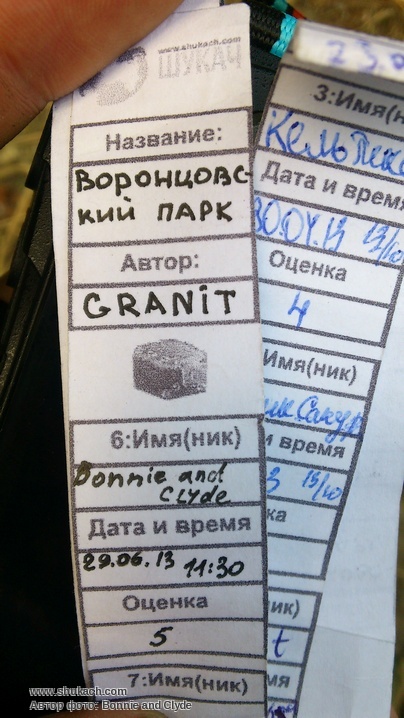 www.shukach.com
ШУКАЧ
Название:
Воронцовс-
кий ПАРК
Автор:
GRANiT
6:Имя(ник)
Bonnie and
Clyde
Дата и время
29.06.13 11:30
Оценка
5
7:Имя(ник)
3:Имя(н
Дата и время
30.04.13
Оценка
4
Имя(ник)
и время
3 13/10
ка
ик)
t
мя
www.shukach.com
Автор фото: Bonnie and Clyde